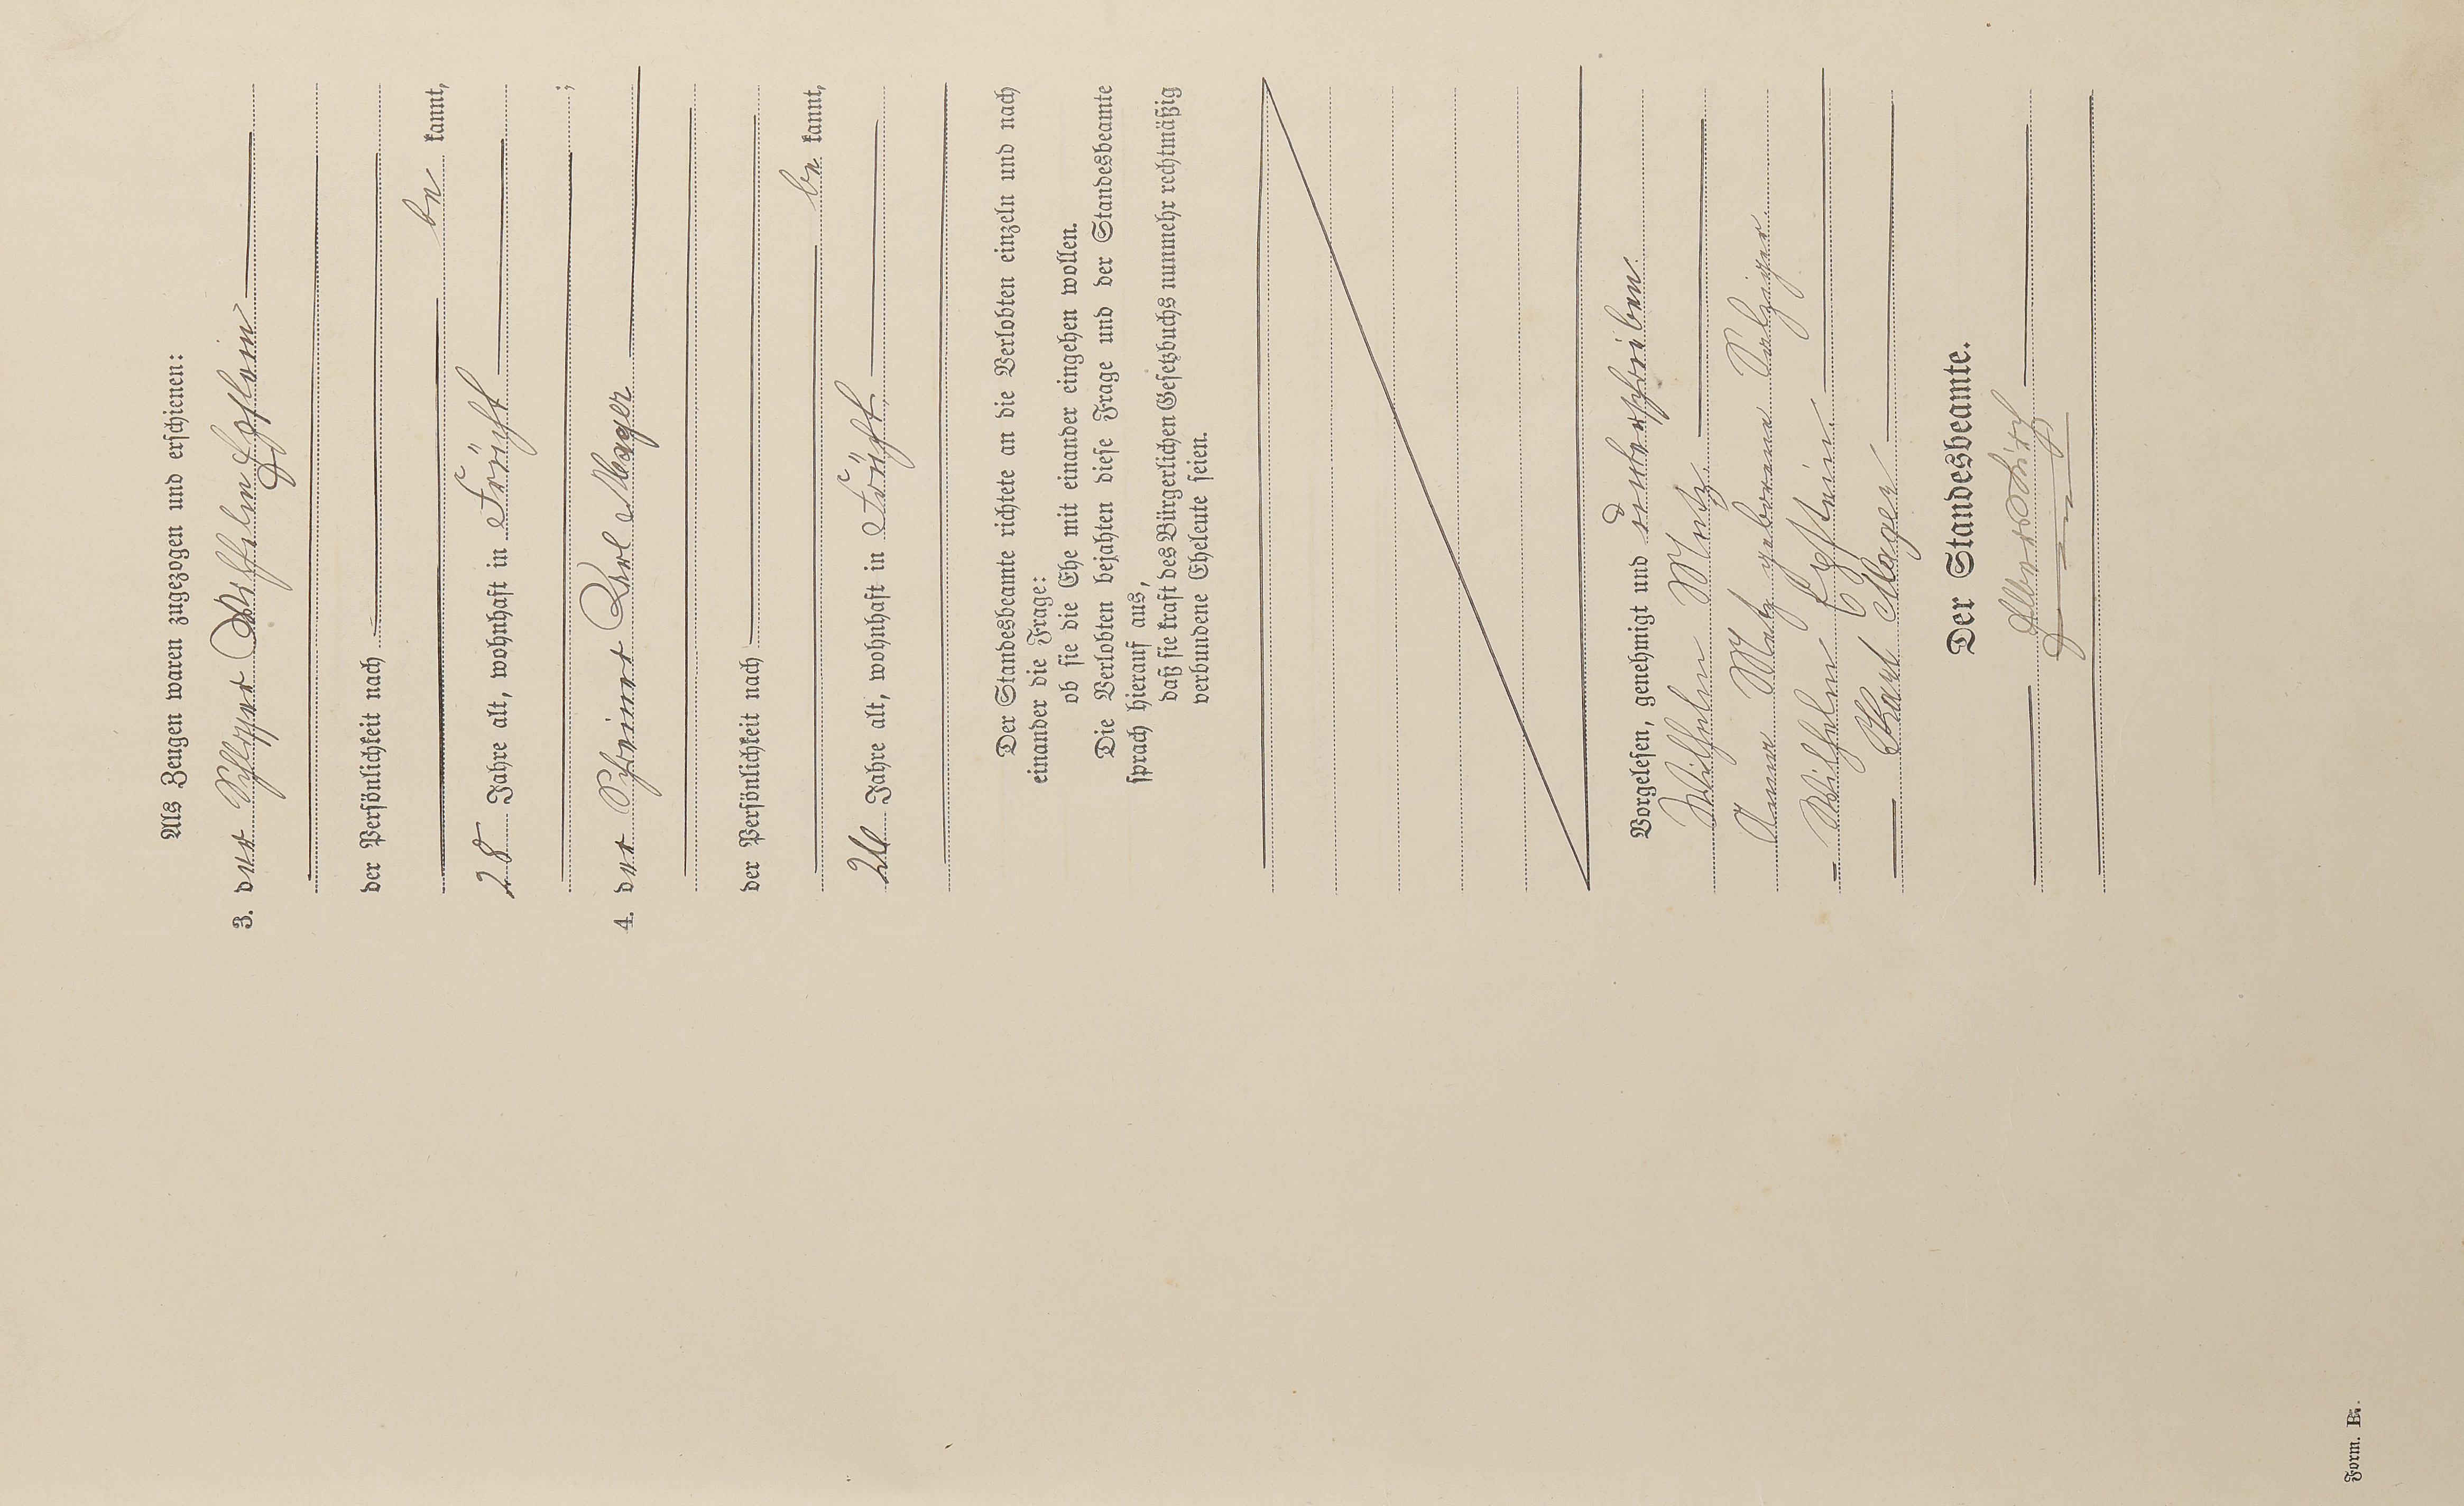 Als Zeugen waren zugezogen und erschienen:
3. der Schlosser Wilhelm Epstein
der Persönlichkeit nach
be kannt,
28 Jahre alt, wohnhaft in Frücht
;
4. der Schreiner Karl Mager
der Persönlichkeit nach
be kannt,
26 Jahre alt, wohnhaft in Frücht.
Der Standesbeamte richtete an die Verlobten einzeln und nach
einander die Frage:
ob sie die Ehe mit einander eingehen wollen.
Die Verlobten bejahten diese Frage und der Standesbeamte
sprach hierauf aus,
daß sie kraft des Bürgerlichen Gesetzbuchs nunmehr rechtmäßig
verbundene Eheleute seien.
Vorgelesen, genehmigt und unterschrieben.
Wilhelm Metz.
Anna Metz geborene Salziger.
Wilhelm Epstein.
Karl Mager
Der Standesbeamte.
Form. B.